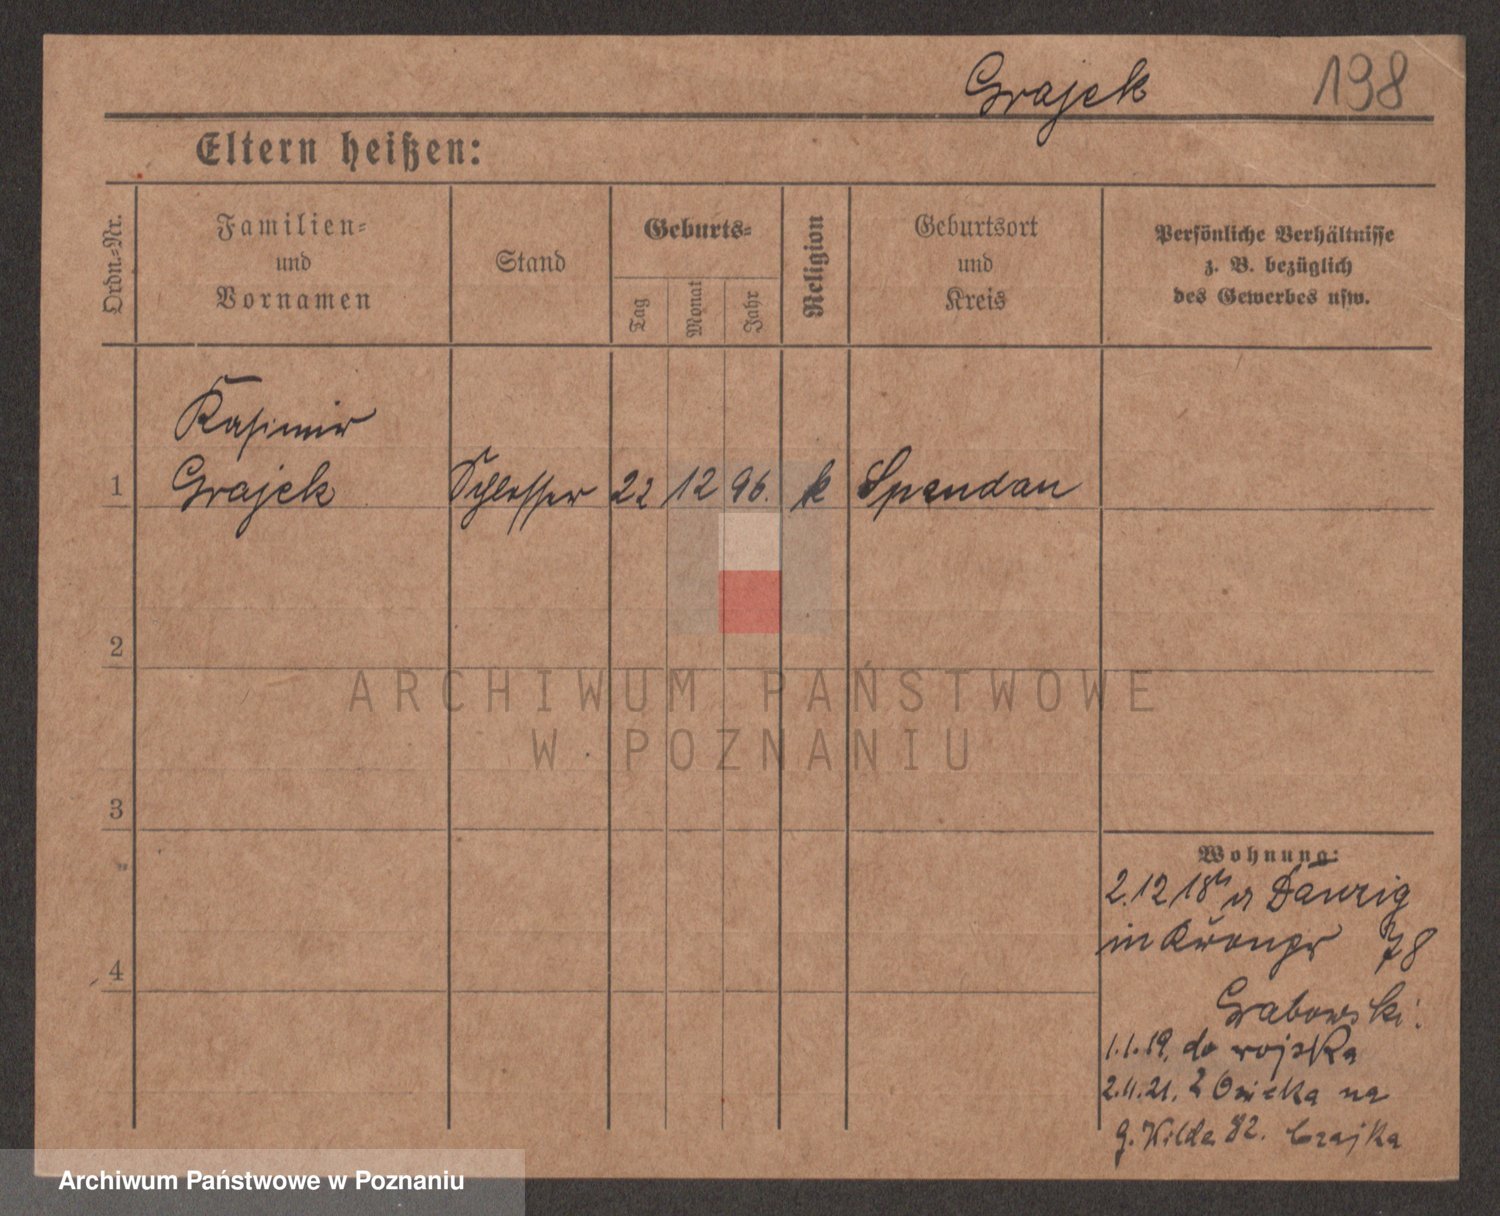 Grajek 198
Eltern heißen:
Ordn.-Nr.
Familien- und Vornamen
Stand
Geburts-
Tag
Monat
Jahr
Religion
Geburtsort und Kreis
Persönliche Verhältnisse
z. B. bezüglich
des Gewerbes usw.
Kasimir
1 Grajek Schlosser 22 12 96. k Spandau
2
3
4
Wohnung:
2.12 18 Danzig
in 78
Grabowski.
1.1.19. do wojska
2.11.21. z Osieka na
g. Wilda 82. Czajka
ARCHIWUM PAŃSTWOWE
W POZNANIU
Archiwum Państwowe w Poznaniu